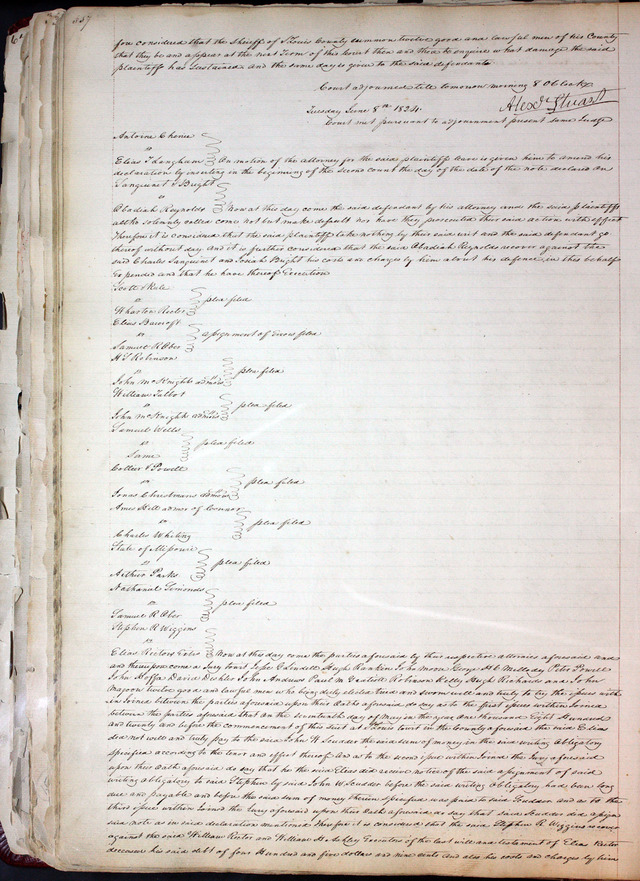 fore considered that the Sheriff of St Louis County summon twelve good and lawful men of his County
that they be and appear at the next Term of this Court then and there to enquire what damage the said
plaintiff has sustained and the same day is given to the said defendants
Court adjourned till tomorrow morning 8 O'Clock
Alexr Stuart
Tuesday June 8th 1824.
Court met pursuant to adjournment present same Judge
Antoine Chenie
vs
Elias T Langham On motion of the attorney for the said plaintiff leave is given him to amend his
declaration by inserting in the beginning of the second count the day of the date of the note declared on
Sanguinet & Bright
vs
Abadiah Reynolds Now at this day come the said defendant by his attorney and the said plaintiffs
altho solemnly called come not but make default nor have they prosecuted their said action with effect
Therefore it is considered that the said plaintiffs take nothing by their said writ and the said defendant go
thereof without day and it is further considered that the said Abadiah Reynolds recover against the
said Charles Sanguinet and Bright his costs and charges by him about his defence in this behalf
expended and that he have thereof Execution
Scott & Rule
vs plea filed
Wharton Rector
Elias Bancroft
vs assignment of errors filed
Samuel R Ober
Robinson
vs plea filed
John McKnights admors
William Talbot
vs plea filed
John McKnights admors
Samuel Wells
vs plea filed
Same
Collier & Powell
vs plea filed
Jonas admors
Amos Hill admor of Connor
vs plea filed
Charles Whiting
State of Missouri
vs plea filed
Arthur Parks
Nathanael Simonds
vs plea filed
Samuel R Ober
Stephen R Wiggins
vs
Elias Rectors Exors Now at this day come the parties aforesaid by their respective attornies aforesaid and
and thereupon come a Jury towit Hugh Rankin John Moon George H C Mellody Peter Powell
John Hoffa David John Andrews Paul M Robinson Kelly Hugh Richards and John
twelve good and lawful men who being duly elected tried and sworn well and truly to try the issues with-
in Joined between the parties aforesaid upon their oaths aforesaid do say as to the first issue within Joined
between the parties aforesaid that on the seventeenth day of May in the year one thousand Eight Hundred
and twenty and before the commencement of this suit at St Louis towit in the County aforesaid the said Elias
did not well and truly pay to the said John W Scudder the said sum of money in the said writing obligatory
specified according to the tenor and effect thereof. And as to the second issue within Joined the Jury aforesaid
upon their oath aforesaid do say that he the said Elias did receive notice of the said assignment of said
writing obligatory to said Stephen by said John W Scudder before the said writing obligatory had been long
due and payable and before the said sum of money therein specified was paid to said Scudder and as to the
third issue within Joined the Jury aforesaid upon their oath aforesaid do say that said Scudder did assign
said note as in said declaration mentioned Therefore it is considered that the said Stephen R Wiggins recover
against the said William Rector and William H Ashley Executors of the last will and testament of Elias Rector
deceased his said debt of four Hundred and five dollars and nine cents and also his costs and charges by him